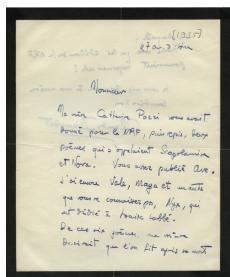 [1935]
Monsieur
Ma mère Catherine Pozzi vous avait
donné pour la NRF, puis repris, deux
poèmes qui s'appelaient Scopolamine
et Nova. Vous avez publié Ave.
J'ai encore Vale, Maya et un autre
que vous ne connaissez pas, Nyx, qui
est dédié à Louise Labbé.
De ces six poèmes, ma mère
désirait que l'on fît après sa mort